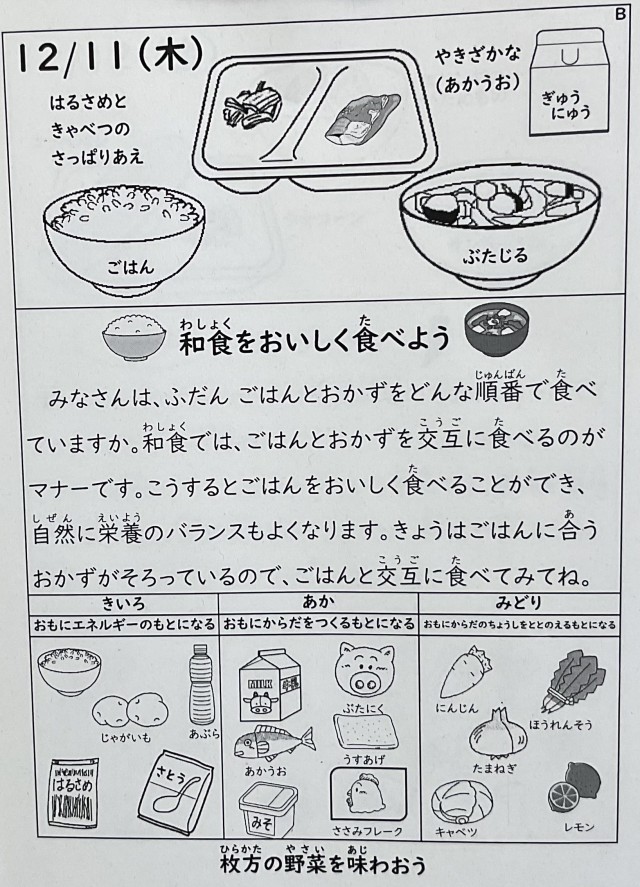 B
12/11(木)
はるさめと
きゃべつの
さっぱりあえ
やきざかな
(あかうお)
ぎゅう
にゅう
ごはん
ぶたじる
和食をおいしく食べよう
わしょく
た
みなさんは、ふだん ごはんとおかずをどんな順番で食べ
じゅんばん
た
ていますか。和食では、ごはんとおかずを交互に食べるのが
わしょく
こうご
た
マナーです。こうするとごはんをおいしく食べることができ、
た
自然に栄養のバランスもよくなります。きょうはごはんに合う
しぜん
えいよう
あ
おかずがそろっているので、ごはんと交互に食べてみてね。
こうご
た
きいろ
おもにエネルギーのもとになる
あか
おもにからだをつくるもとになる
みどり
おもにからだのちょうしをととのえるもとになる
じゃがいも
あぶら
はるさめ
さとう
MILK
ぶたにく
あかうお
うすあげ
みそ
ささみフレーク
にんじん
ほうれんそう
たまねぎ
キャベツ
レモン
枚方の野菜を味わおう
ひらかた
やさい
あじ